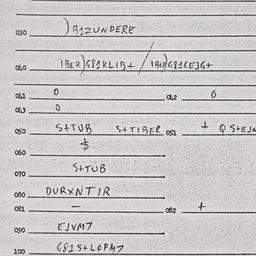 030 )B1ZUNDERE
040 1BER)G81KLIB+ / 1BU)G81CEJG+
041 0 042 6
043 0
050 S+TUB S+TIBER 051 + Q S+EJN
060 $
070 S+TUB
080 DURXNTIR
081 - 082 +
090 EJVM7
100 G81S+LOFM7